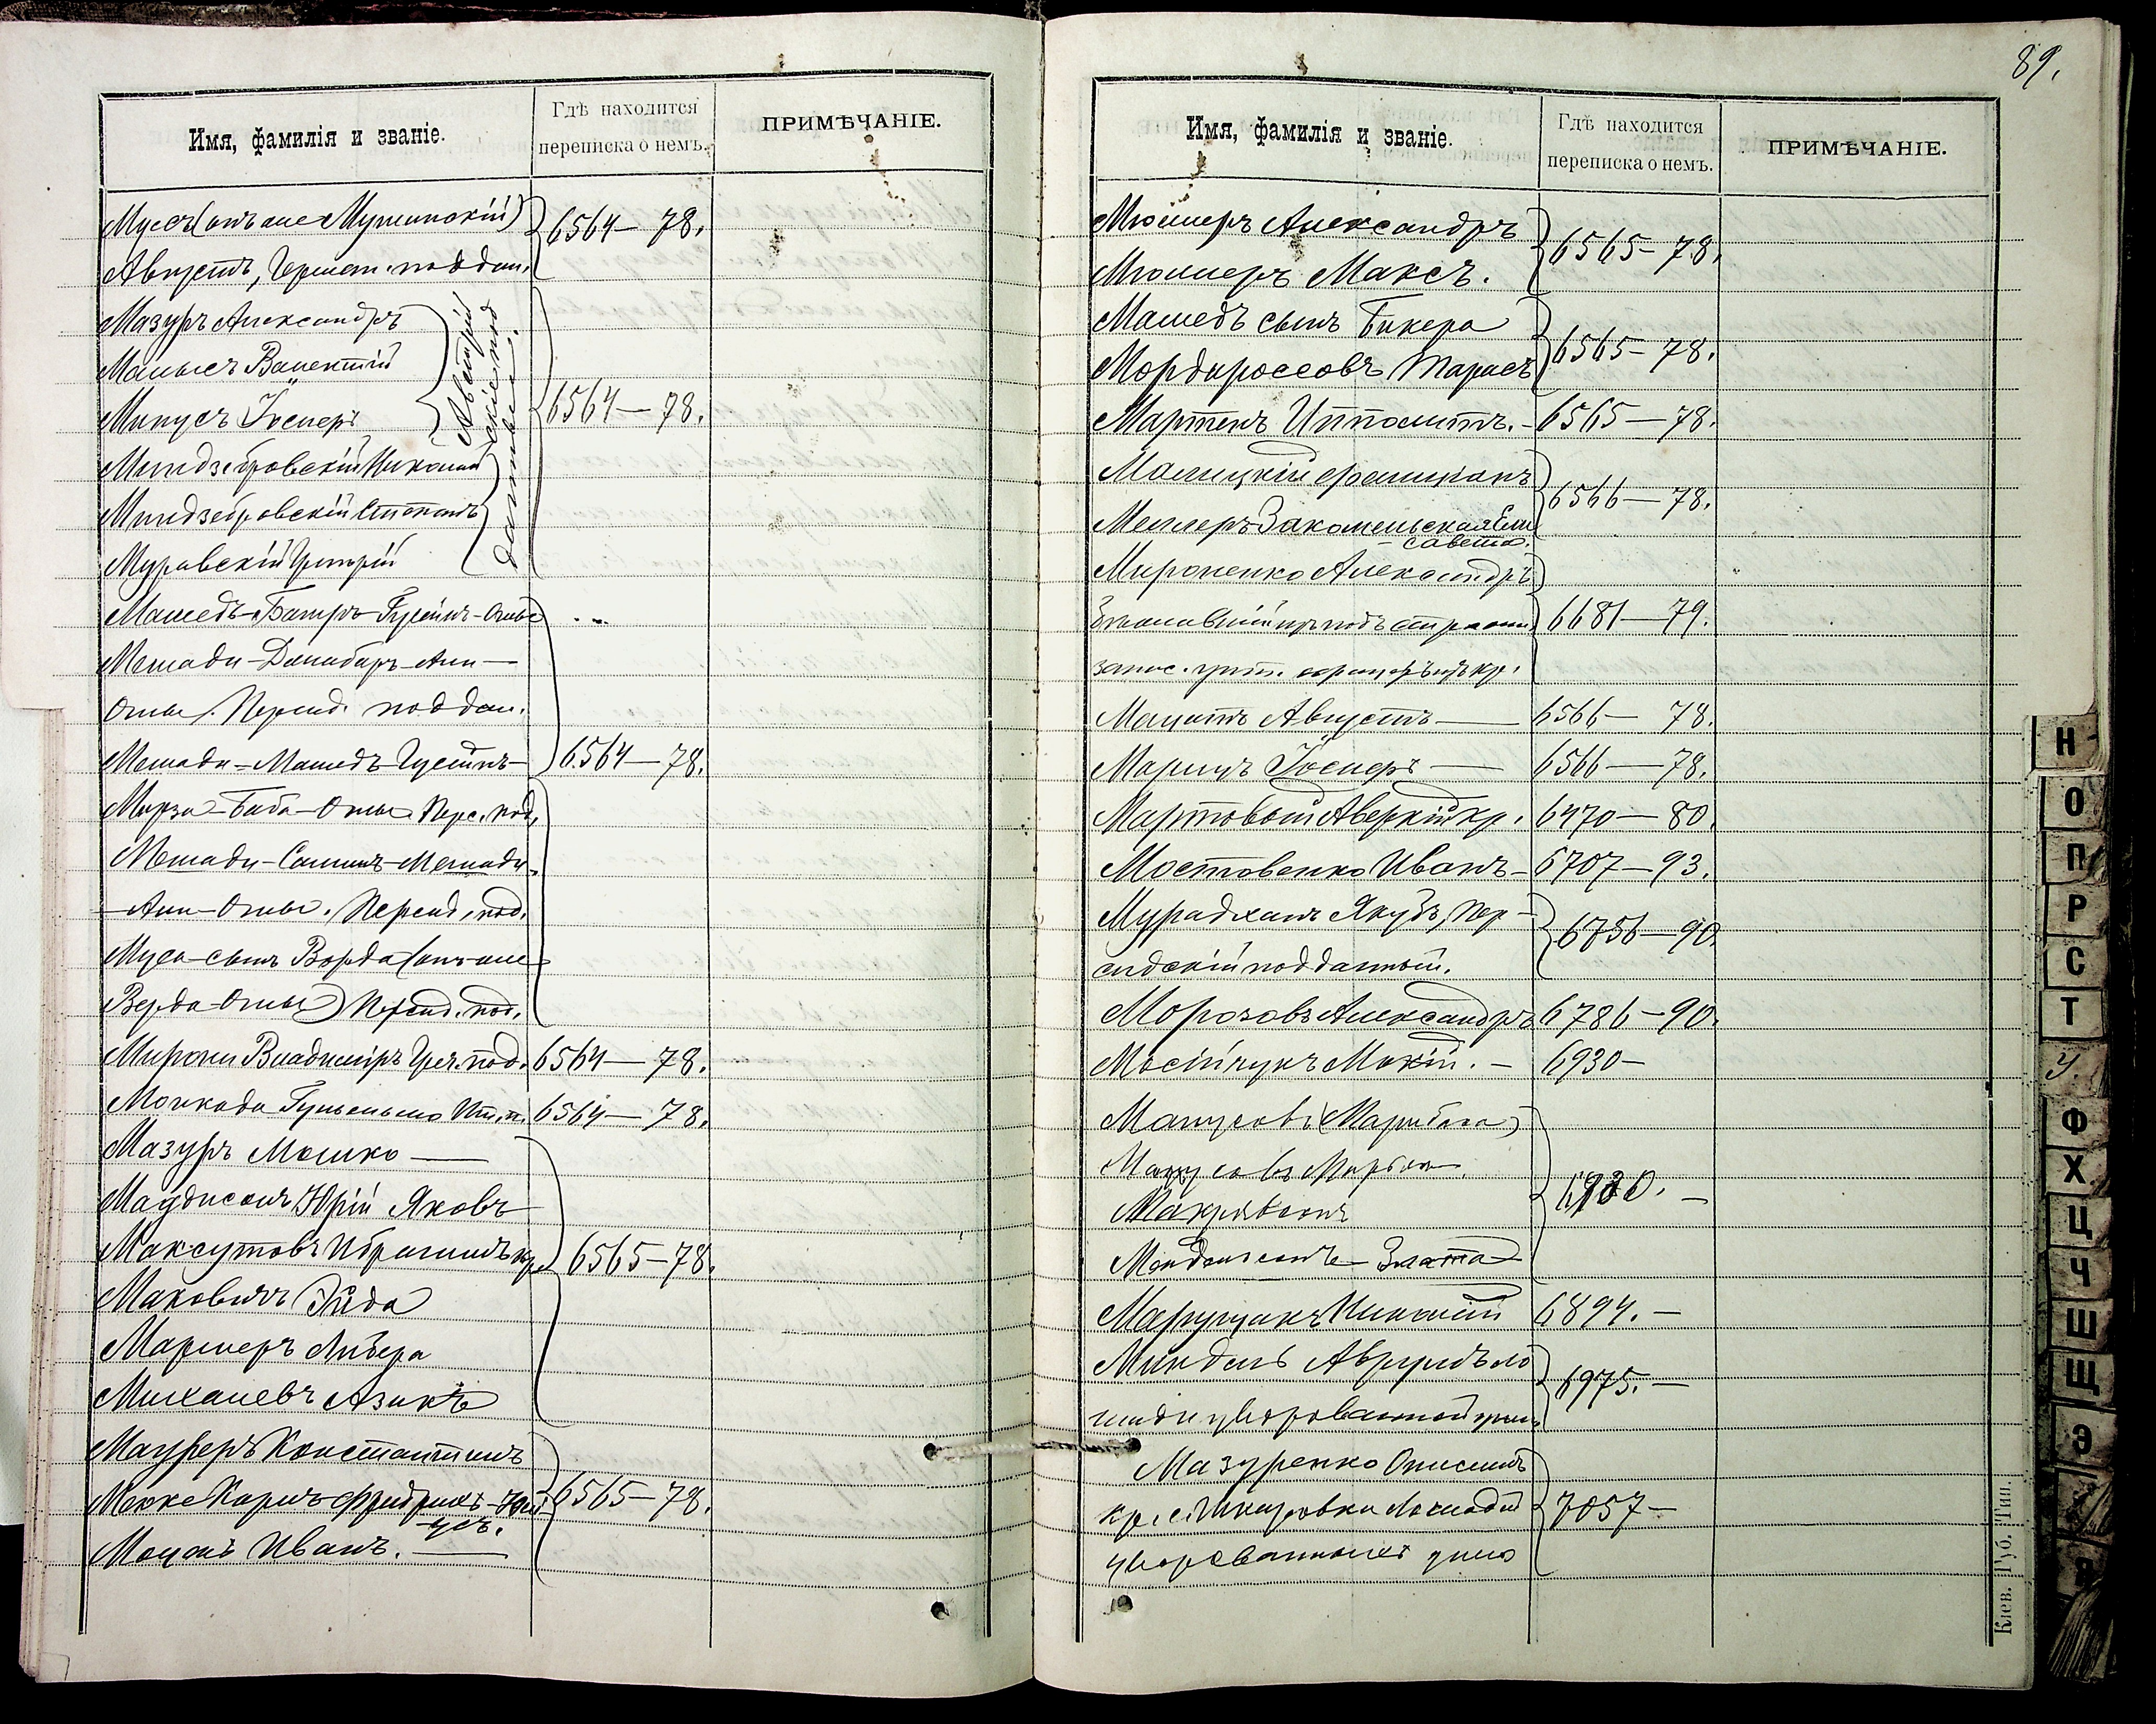 Имя, фамилія и званіе.
Гдѣ находится
переписка о немъ.
ПРИМѢЧАНІЕ.
Мусъ (онъ же Мушинскій)
Августъ, Герман. поддан.
6564 — 78.
Мазуръ Александръ
Малысъ Валентій
Микусъ Іосифъ
Миндзебровскій Николай
Миндзебровскій Степанъ
Муравскій Григорій
Австрій
скіе под
данные.
6564 — 78.
Мамедъ-Багиръ-Гусейнъ-Оглы
Мешади-Джабаръ-Али-
Оглы. Персид. поддан.
Мешади-Мамедъ-Гусейнъ-
6564 — 78.
Мирза-Баба-Оглы Перс. под.
Мешади-Мешади-
-Али-Оглы. Персид. под.
Муса-сынъ Ворда (онъ же
Верда-Оглы) Персид. под.
Мирони Владиміръ Греч. под.
6564 — 78.
Монкада Гульельмо Ит. п.
6564 — 78.
Мазуръ Мошко —
Маддисонъ Юрій Яковъ
Максутовъ Ибрагимъ кр.
6565 — 78.
Маковичъ Эйда
Маргеръ
Михалевъ Азикъ
Мауреръ Константинъ
Мекке Карлъ-Фридрихъ-Юлі-
усъ.
6565 — 78.
Моцакъ Иванъ. —
89.
Имя, фамилія и званіе.
Гдѣ находится
переписка о немъ.
ПРИМѢЧАНІЕ.
Мюллеръ Александръ
Мюллеръ Максъ.
6565 — 78.
Мамедъ сынъ Бикера
Мордароссовъ Тарасъ
6565 — 78.
Мартенъ Ипполитъ. —
6565 — 78.
Малицкій Фелиціанъ
Меллеръ-Закомельская Ели
савета.
6566 — 78.
Мироненко Александръ
6681 — 79.
запас. унт. офицеръ изъ кр.
Августъ —
6566 — 78.
Морицъ Іосифъ —
6566 — 78.
Мартовый Аверкій кр.
6470 — 80.
Мостовенко Иванъ —
6707 — 93.
Мурадханъ Якубъ, Пер-
сидскій подданный.
6756 — 90.
Морозовъ Александръ
6786 — 90.
Мосійчукъ Мокій. —
6930 —
Манусовъ
Мовъ
6930. —
Мендельсонъ — Злата
Марущакъ Николай
6894. —
Миндель
шади уворованной
6975. —
Мазуренко Онисимъ
кр. с. Шкаровки Лошадей
уворованныхъ
7057 —
Кіев. Губ. Тип.
Н
О
П
Р
С
Т
У.
Ф
Х
Ц
Ч
Ш
Щ
Э
Я